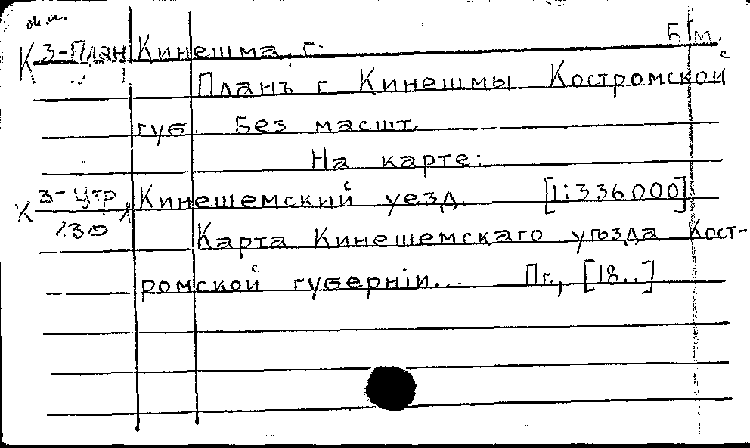 К 3-План Кинешма, г. Б/м.
Планъ г. Кинешмы Костромской
губ. Без масшт.
На карте:
К 3-Цтр Кинешемский уезд. [1:336000]
/30 Карта Кинешемскаго уѣзда Кост-
ромской губернiи... Пг., [18..]